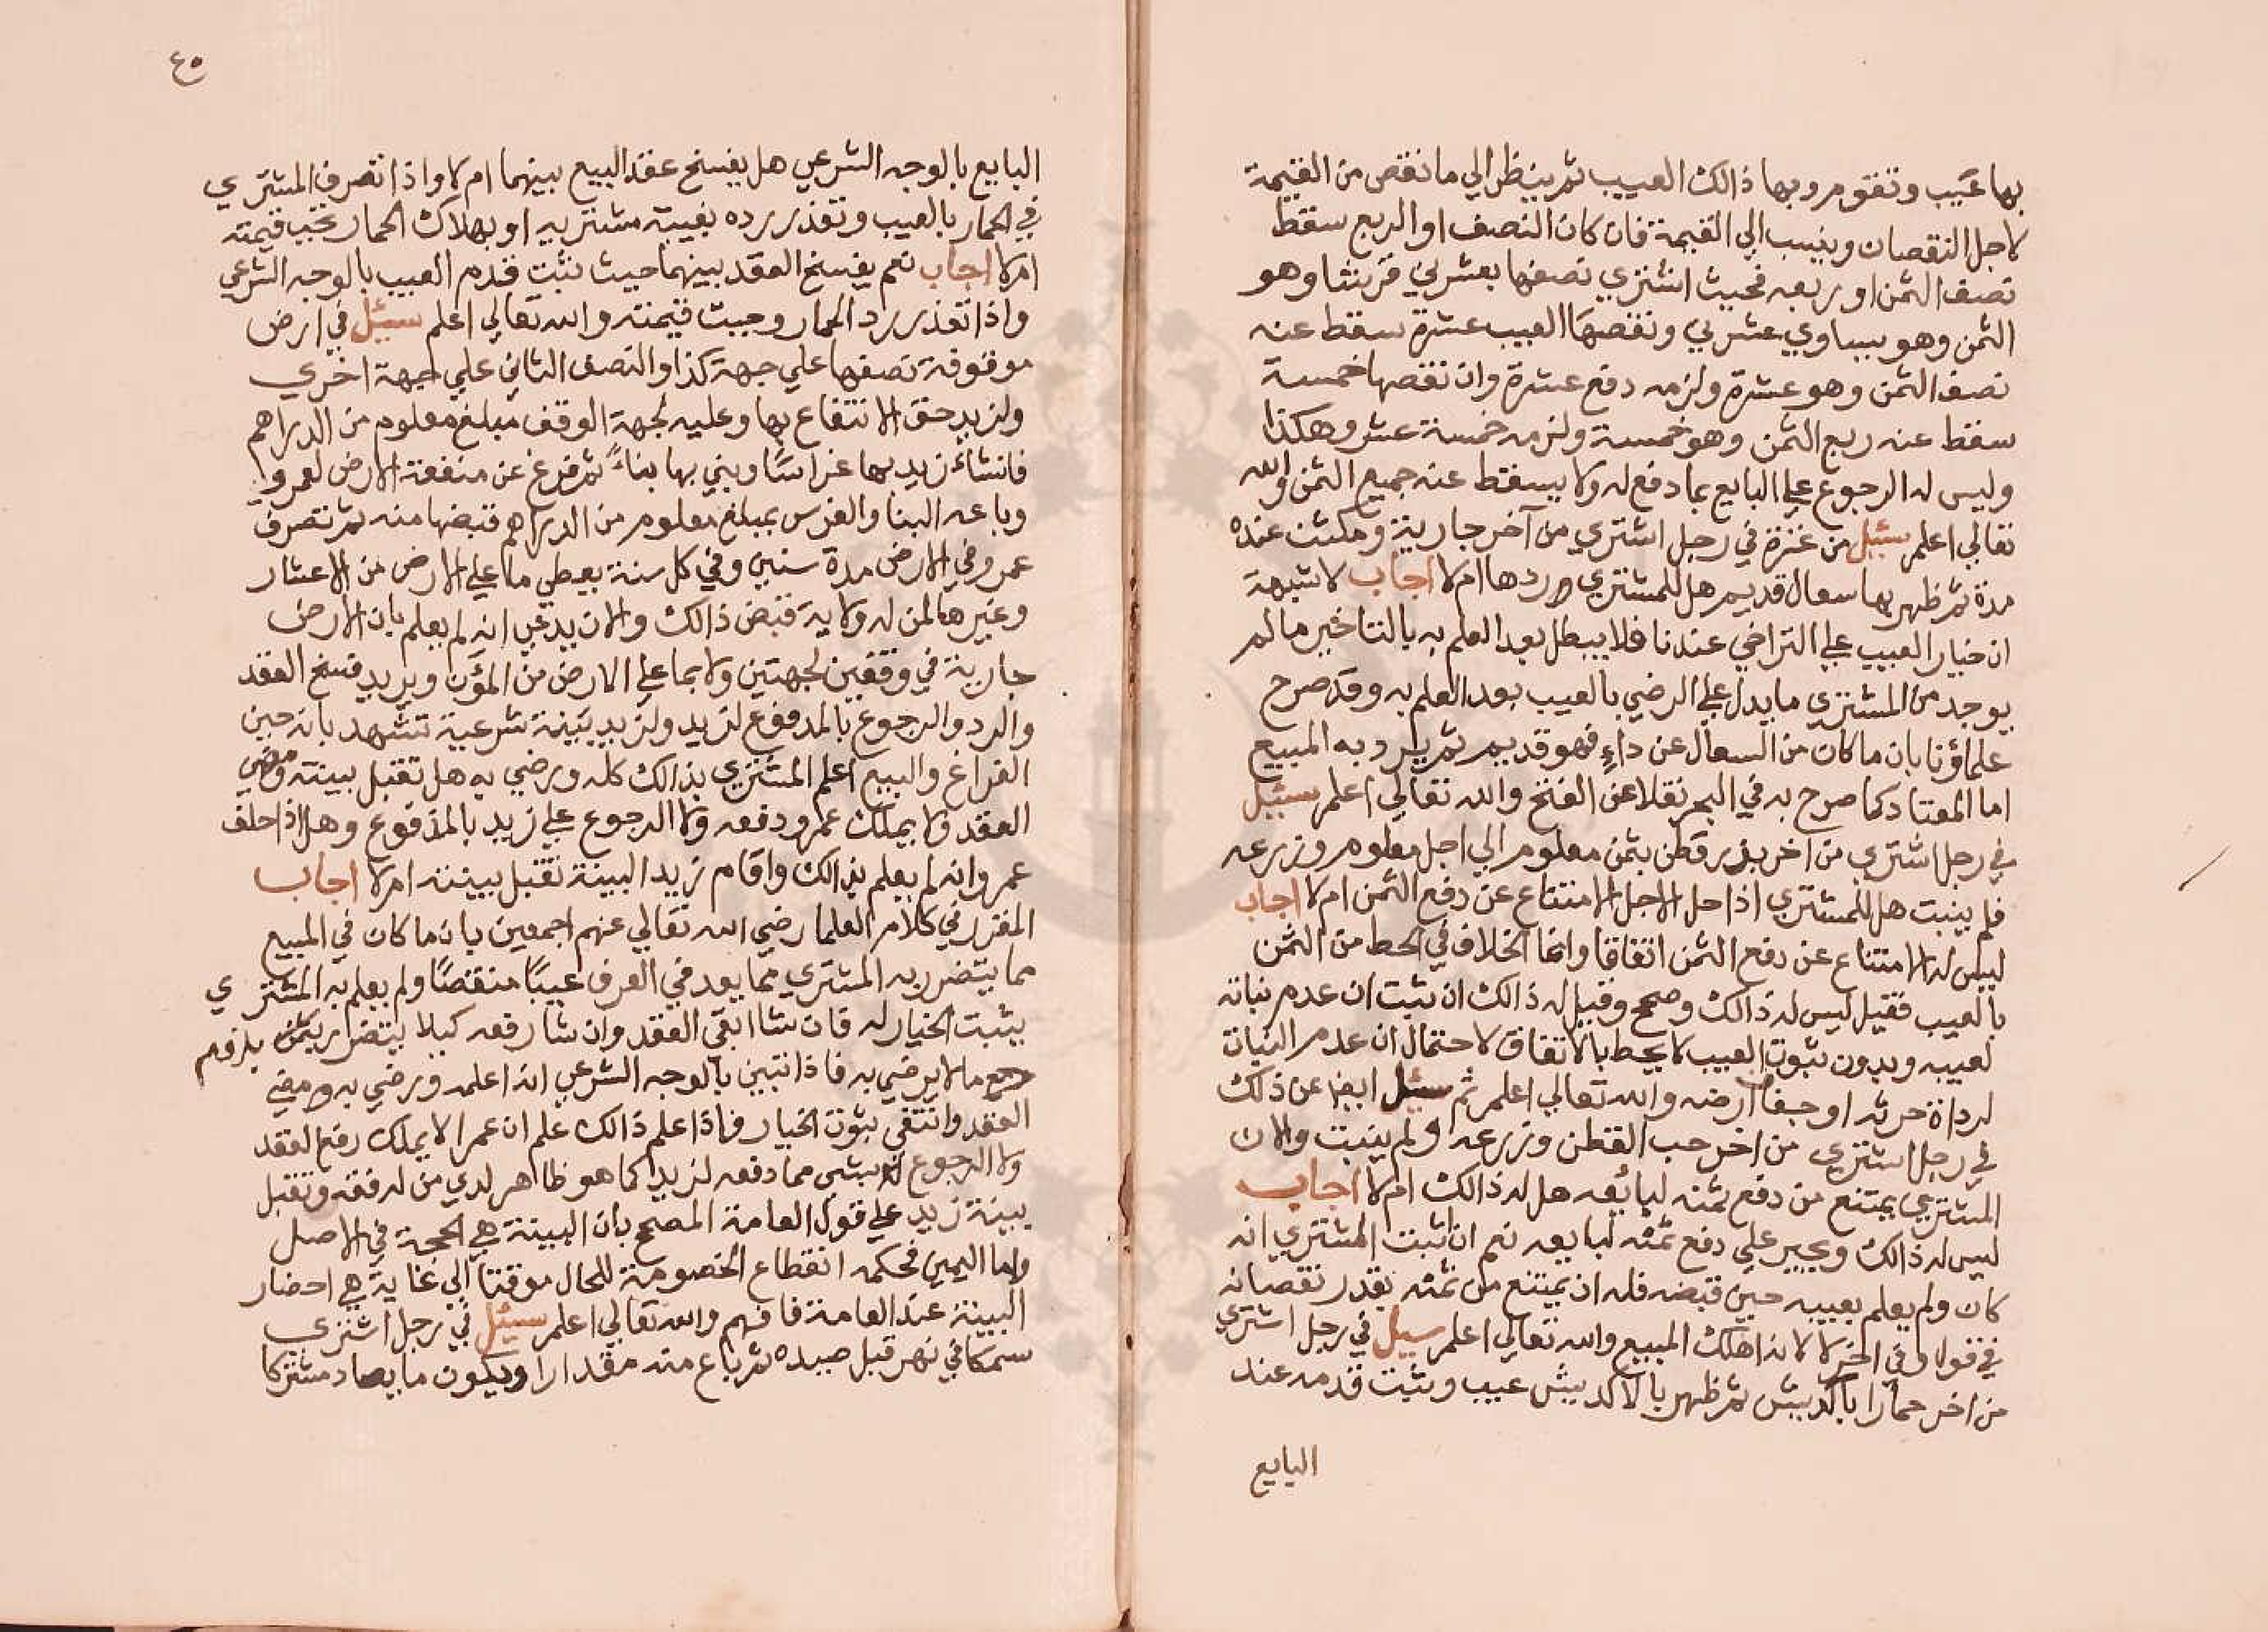 بها عيب وتقوم وبها ذالك العييب ثم ينظر الي ما نقص من القيمة
لاجل النقصان وينسب الي القيمة فان كان النصف او الربع سقط
نصف الثمن او ربعه فحيث اشتري نصفها بعشرين قرشا وهو
الثمن وهو يساوي عشرين ونقصها العيب عشرة سقط عنه
نصف الثمن وهو عشرة ولزمه دفع عشرة وان نقصها خمسة
سقط عنه ربع الثمن وهو خمسة ولزمه خمسة عشر وهكذا
وليس له الرجوع علي البايع بما دفع له ولا يسقط عنه جميع الثمن والله
تعالي اعلم سئيل من غزة في رجل اشتري من آخر جارية ومكثت عنده
مدة ثم ظهر بها سعال قديم هل للمشتري ردها ام لا اجاب لا شبهة
ان خيار العييب علي التراخي عندنا فلا يبطل بعد العلم به بالتاخير ما لم
يوجد من المشتري ما يدل علي الرضي بالعيب بعد العلم به وقد صرح
علماؤنا بان ما كان من السعال عن داءٍ فهو قديم ثم يرد به المبيع
اما المعتاد كما صرح به في البحر نقلا عن الفتح والله تعالي اعلم سئيل
في رجل اشتري من اخر بذر قطن بثمن معلوم الي اجل معلوم وزرعه
فلم ينبت هل للمشتري اذا حل الاجل الامتناع عن دفع الثمن ام لا اجاب
ليس له الامتناع عن دفع الثمن اتفاقا وانما الخلاف في الحط من الثمن
بالعيب فقيل ليس له ذالك وصحح وقيل له ذالك ان ثبت ان عدم نباته
لعيبه وبدون ثبوت العيب لا يحط بالاتفاق لاحتمال ان عدم النبات
لرداة حرثه او جفاف ارضه والله تعالي اعلم ثم سئيل ايضا عن ذلك
في رجل اشتري من اخر حب القطن وزرعه ولم ينبت والان
المشتري يمتنع من دفع ثمنه لبائعه هل له ذالك ام لا اجاب
ليس له ذالك ويجبر علي دفع ثمنه لبايعه نعم ان اثبت المشتري انه
كان ولم يعلم بعيبه حين قبضه فله ان يمتنع من ثمنه بقدر نقصانه
في قول وفي اخر لا لانه اهلك المبيع والله تعالي اعلم سيل في رجل اشتري
من اخر حمارا باكديش ثم ظهر بالاكديش عيب وثبت قدمه عند
البايع
٤٥
البايع بالوجه الشرعي هل يفسخ عقد البيع بينهما ام لا واذا تصرف المشتري
في الحمار بالعيب وتعذر رده بغيبة مشتريه او بهلاك الحمار تجب قيمته
ام لا اجاب نعم يفسخ العقد بينهما حيث ثبت قدم العيب بالوجه الشرعي
واذا تعذر رد الحمار وجبت قيمته والله تعالي اعلم سئيل في ارض
موقوفة نصفها علي جهة كذا والنصف الثاني علي جهة اخري
ولزيد حق الانتفاع بها وعليه لجهة الوقف مبلغ معلوم من الدراهم
فانشاء زيد بها غراسًا وبني بها بناءً ثم فرغ عن منفعة الارض لعمروا
وباعه البنا والغرس بمبلغ معلوم من الدراهم قبضها منه ثم تصرف
عمرو في الارض مدة سنين وفي كل سنة يعطي ما علي الارض من الاعشار
وغيرها لمن له ولاية قبض ذالك والان يدعي انه لم يعلم بان الارض
جارية في وقفين لجهتين ولا بما علي الارض من المؤن ويريد فسخ العقد
والرد والرجوع بالمدفوع لزيد ولزيد بينة شرعية تشهد بانه حين
الفراغ والبيع اعلم المشتري بذالك كله ورضي به هل تقبل بينته ومضي
العقد ولا يملك عمرو دفعه ولا الرجوع علي زيد بالمدفوع وهل اذا حلف
عمرو انه لم يعلم بذالك واقام زيد البينة تقبل بينته ام لا اجاب
المقرر في كلام العلما رضي الله تعالي عنهم اجمعين بان ما كان في المبيع
مما يتضرر به المشتري مما يعد في العرف عيبًا منقصًا ولم يعلم به المشتري
يثبت الخيار له فان شا ابقي العقد وان شا رفعه كيلا يتضرر بلزوم
ما لا يرضي به فاذا تبين بالوجه الشرعي انه اعلمه ورضي به ومضي
العقد وانتفي ثبوت الخيار فاذا علم ذالك علم ان عمرا لا يملك رفع العقد
ولا الرجوع بشي مما دفعه لزيد كما هو ظاهر لدي من له فقه وتقبل
بينة زيد علي قول العامة المصحح بان البينة هي الحجة في الاصل
واما اليمين فحكمه انقطاع الخصومة للحال موقتا الي غاية هي احضار
البينة عند العامة فافهم والله تعالي اعلم سئيل في رجل اشتري
سمكا في نهر قبل صيده ثم باع منه مقدارا ويكون ما يصاد مشتركا